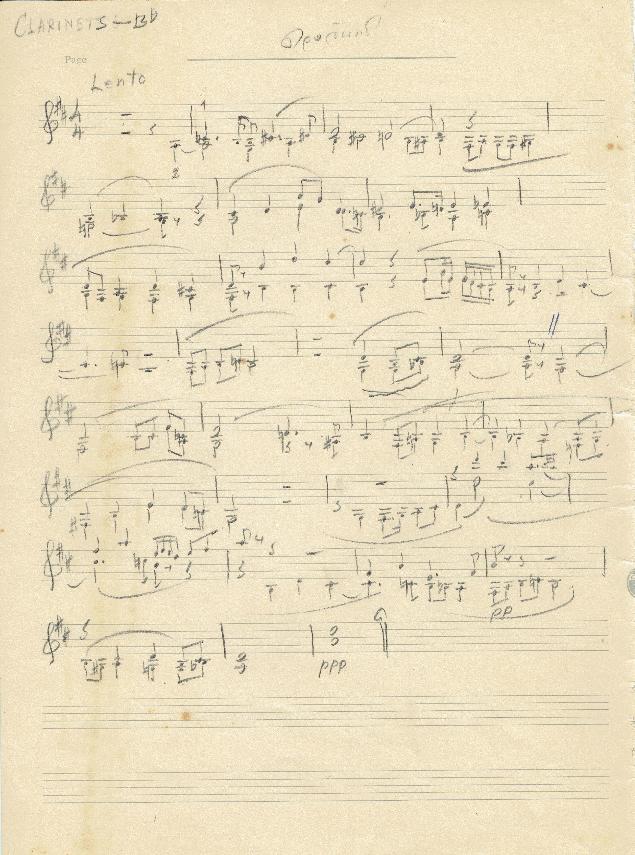 CLARINETS - Bb
Page
Lento
4
4
pp
ppp